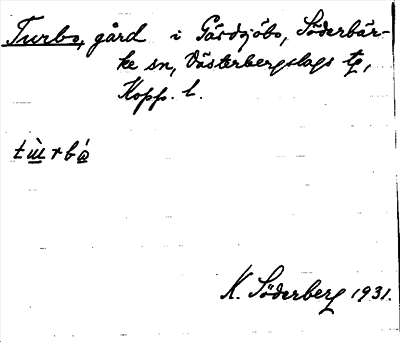 Turbo, gård i Gårdsjöbo, Söderbär-
ke sn, Västerbergslags tg,
Kopp. l.
tù̲rbá̲
K. Söderberg 1931.